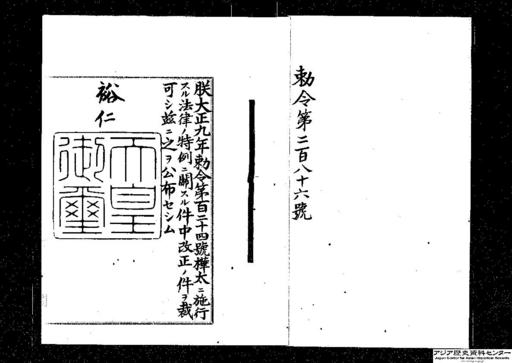 勅令第二百八十六號
朕大正九年勅令第百二十四號樺太ニ施行
スル法律ノ特例ニ關スル件中改正ノ件ヲ裁
可シ茲ニ之ヲ公布セシム
裕仁
天皇
御璽
アジア歴史資料センター
Japan Center for Asian Historical Records